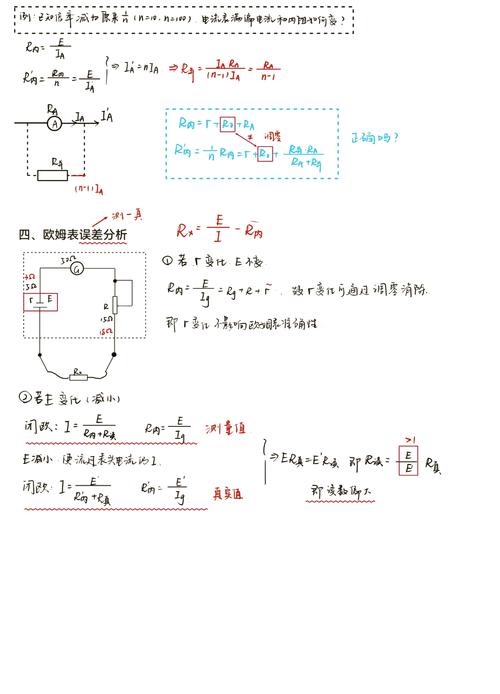 例: 已知倍率减为原来 1/n (n=10. n=100). 电流表满偏电流和内阻如何变?
R内 = E/I_A
R'内 = R内/n = E/I'_A
⇒ I'_A = nI_A ⇒ R并 = I_A R_A/(n-1)I_A = R_A/n-1
R_A
A
I_A
I'_A
R并
(n-1)I_A
R内 = r + R₀ + R_A
调零
R'内 = 1/n R内 = r + R₀ + R并·R_A/R_A+R并
正确吗?
测-真
四、欧姆表误差分析
Rx = E/I - R内
30Ω
G
r
E
R
15Ω
Rx
① 若 r 变化 E 不变
R内 = E/Ig = Rg + R + r . 故 r 变化可通过调零消除.
即 r 变化不影响欧姆表准确性
② 若E变化 (减小)
闭欧: I = E/R内+R读 R内 = E/Ig 测量值
E减小 使流过表头电流仍 I.
闭欧: I = E'/R'内+R真 R'内 = E'/Ig 真实值
⇒ ER真 = E'R读 即 R读 = E/E' R真
>1
即读数偏大